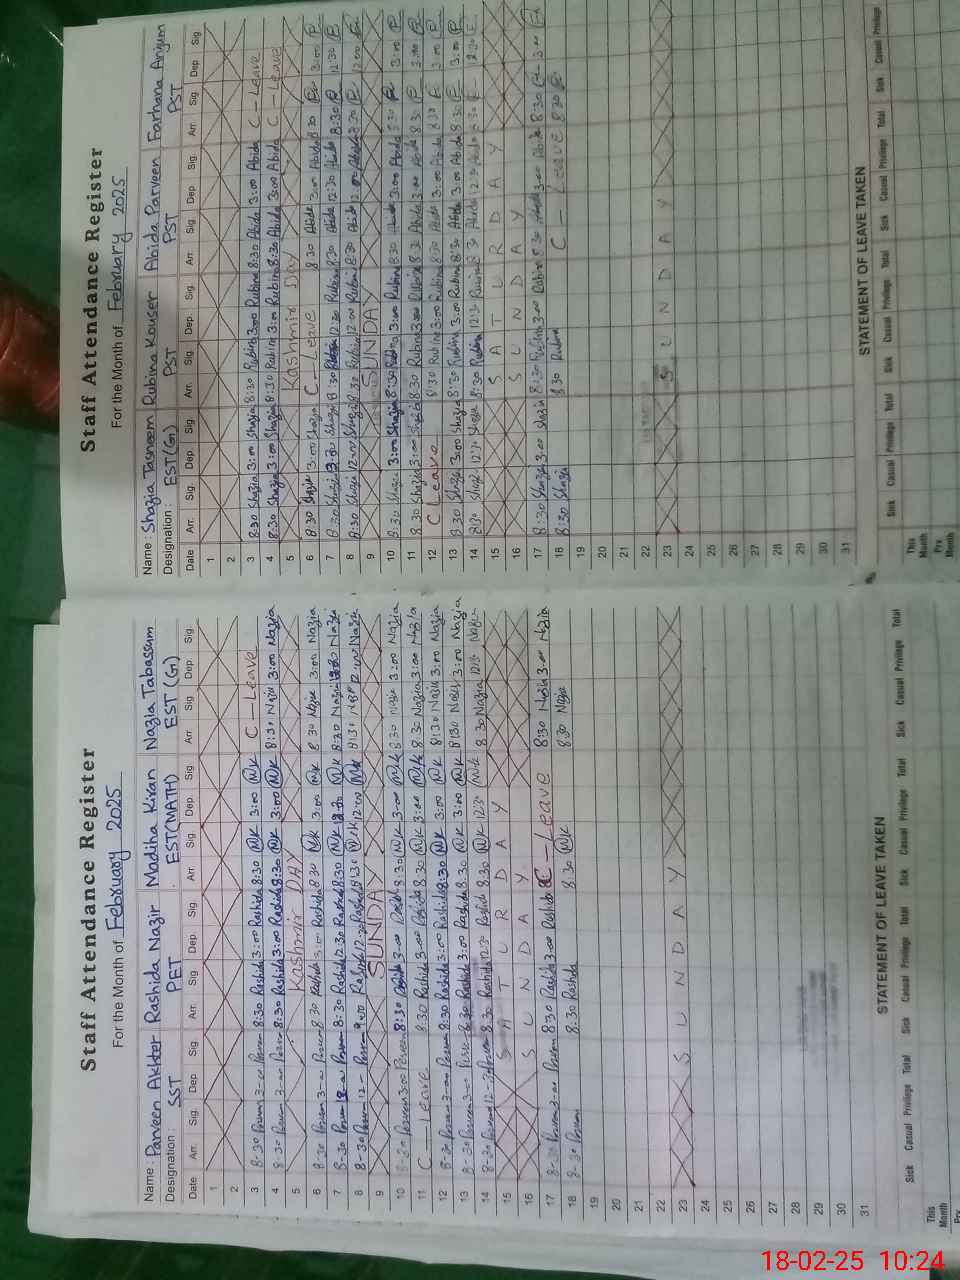 Staff Attendance Register
For the Month of February 2025
Name : Parveen Akhter Rashida Nazir Madiha Kiran Nazia Tabassum
Designation : SST PET EST(MATH) EST(G)
Date Arr. Sig. Dep. Sig. Arr. Sig. Dep. Sig. Arr. Sig. Dep. Sig. Arr. Sig. Dep. Sig.
1
2
3 8-30 3-00 8:30 Rashida 3:00 Rashida 8:30 MK 3:00 MK C - Leave
4 8-30 3-00 8:30 Rashida 3:00 Rashida 8:30 MK 3:00 MK 8:30 Nazia 3:00 Nazia
5 Kashmir DAY
6 8-30 3-00 8:30 Rashida 3:00 Rashida 8:30 MK 3:00 MK 8:30 Nazia 3:00 Nazia
7 8-30 8:30 Rashida 12:30 Rashida 8:30 MK MK 8:30 Nazia Nazia
8 8-30 Rashida 12:30 Rashida 8:30 MK 12:00 MK 8:30 12:00 Nazia
9 SUNDAY
10 8-30 Parveen 3:00 Parveen 8:30 3-00 8:30 MK 3-00 MK 8:30 Nazia 3:00 Nazia
11 C - Leave 8:30 Rashida 3-00 Rashida 8:30 MK 3:00 MK 8:30 Nazia 3:00 Nazia
12 8-30 3-00 8:30 Rashida 3:00 Rashida 8:30 MK 3:00 MK 8:30 Nazia 3:00 Nazia
13 8-30 3-00 8:30 Rashida 3:00 Rashida 8:30 MK 3:00 MK 8:30 Nazia 3:00 Nazia
14 8-30 8:30 Rashida 12:30 Rashida 8:30 MK 12:30 MK 8:30 Nazia Nazia
15 SATURDAY
16 SUNDAY
17 8-30 3-00 8:30 Rashida 3-00 Rashida C - Leave 8:30 Nazia 3-00 Nazia
18 8-30 8:30 Rashida 8:30 MK 8:30 Nazia
19
20
21
22
23 SUNDAY
24
25
26
27
28
29
30
31
STATEMENT OF LEAVE TAKEN
Sick Casual Privilege Total Sick Casual Privilege Total Sick Casual Privilege Total Sick Casual Privilege Total
This
Month
Staff Attendance Register
For the Month of February 2025
Name : Shazia Tasneem Rubina Kouser Abida Parveen Farhana Anjum
Designation : EST(G) PST PST PST
Date Arr. Sig. Dep. Sig. Arr. Sig. Dep. Sig. Arr. Sig. Dep. Sig. Arr. Sig. Dep. Sig.
1
2
3 8:30 Shazia 3:00 Shazia 8:30 Rubina 3:00 Rubina 8:30 Abida 3:00 Abida C - Leave
4 8:30 Shazia 3:00 Shazia 8:30 Rubina 3:00 Rubina 8:30 Abida 3:00 Abida C - Leave
5 Kashmir Day
6 8:30 Shazia 3:00 Shazia C - Leave 8:30 Abida 3:00 Abida 8:30 3:00
7 8:30 Shazia Shazia 8:30 Rubina 12:30 Rubina 8:30 Abida 12:30 Abida 8:30 12:30
8 8:30 Shazia 12:00 Shazia 8:30 Rubina 12:00 Rubina 8:30 Abida Abida 8:30 12:00
9 SUNDAY
10 8:30 Shazia 3:00 Shazia 8:30 Rubina 3:00 Rubina 8:30 Abida 3:00 Abida 8:30 3:00
11 8:30 Shazia 3:00 Shazia 8:30 Rubina 3:00 Rubina 8:30 Abida 3:00 Abida 8:30 3:00
12 C Leave 8:30 Rubina 3:00 Rubina 8:30 Abida 3:00 Abida 8:30 3:00
13 8:30 Shazia 3:00 Shazia 8:30 Rubina 3:00 Rubina 8:30 Abida 3:00 Abida 8:30 3:00
14 8:30 Shazia Shazia 8:30 Rubina 12:30 Rubina 8:30 Abida 12:30 Abida 8:30
15 SATURDAY
16 SUNDAY
17 8:30 Shazia 3:00 Shazia 8:30 Rubina 3:00 Rubina 8:30 Abida 3:00 Abida 8:30 3:00
18 8:30 Shazia 8:30 Rubina C - Leave 8:30
19
20
21
22
23 SUNDAY
24
25
26
27
28
29
30
31
STATEMENT OF LEAVE TAKEN
Sick Casual Privilege Total Sick Casual Privilege Total Sick Casual Privilege Total Sick Casual Privilege
This
Month
Prv
Month
18-02-25 10:24